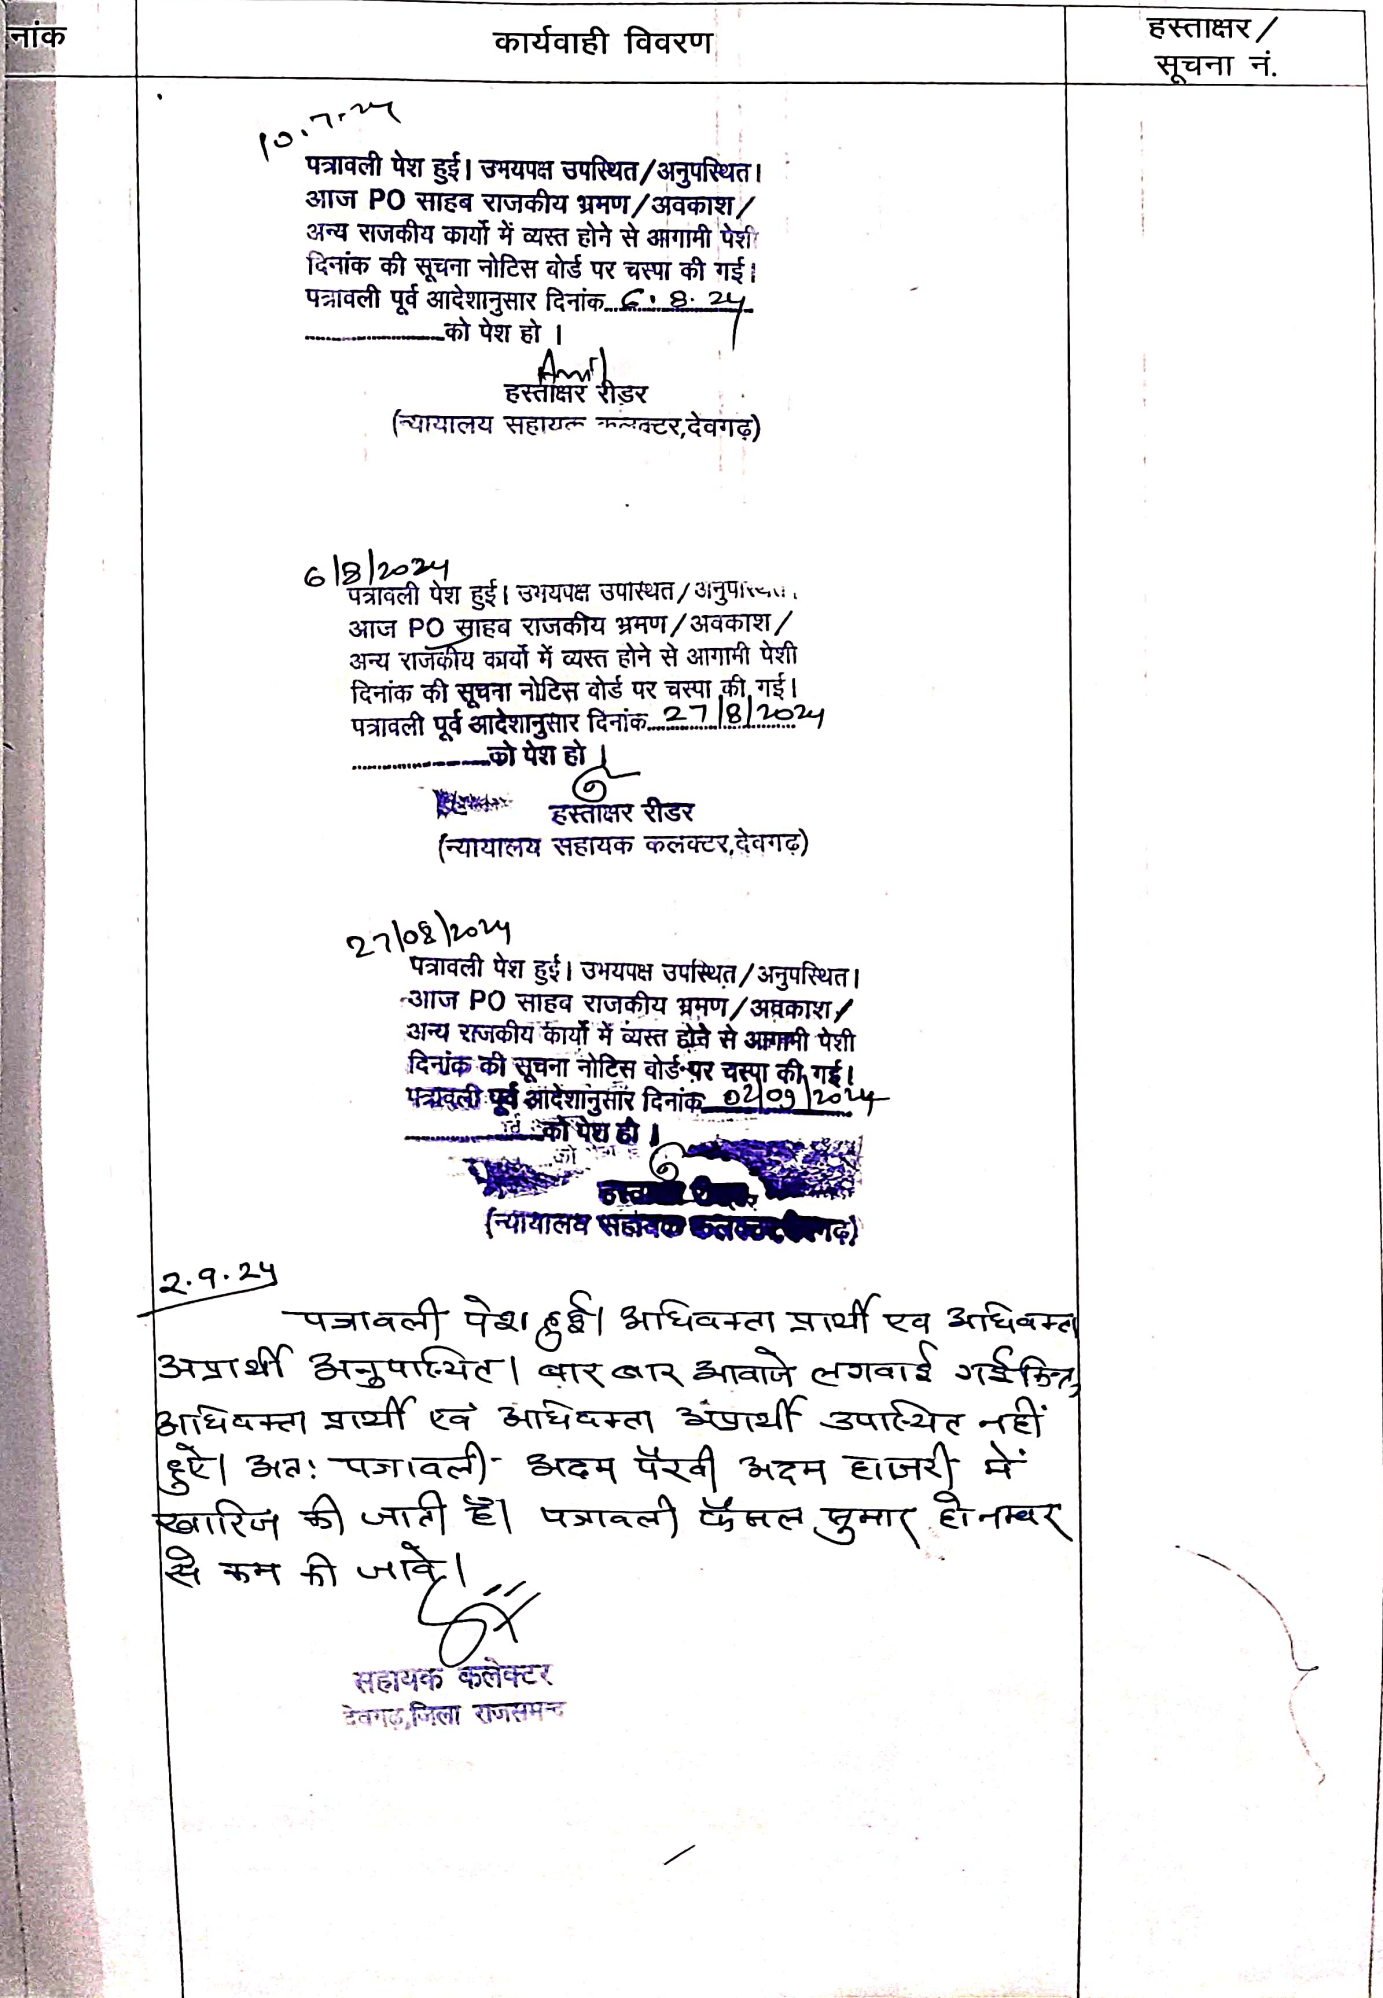 नांक
कार्यवाही विवरण
हस्ताक्षर /
सूचना नं.
10.7.24
पत्रावली पेश हुई। उभयपक्ष उपस्थित/अनुपस्थित।
आज PO साहब राजकीय भ्रमण/अवकाश/
अन्य राजकीय कार्यो में व्यस्त होने से आगामी पेशी
दिनांक की सूचना नोटिस बोर्ड पर चस्पा की गई।
पत्रावली पूर्व आदेशानुसार दिनांक 6.8.24
को पेश हो ।
हस्ताक्षर रीडर
(न्यायालय सहायक कलक्टर,देवगढ़)
6/8/2024
पत्रावली पेश हुई। उभयपक्ष उपस्थित/अनुपस्थित।
आज PO साहब राजकीय भ्रमण/अवकाश/
अन्य राजकीय कार्यो में व्यस्त होने से आगामी पेशी
दिनांक की सूचना नोटिस बोर्ड पर चस्पा की गई।
पत्रावली पूर्व आदेशानुसार दिनांक 27/8/2024
को पेश हो ।
हस्ताक्षर रीडर
(न्यायालय सहायक कलक्टर,देवगढ़)
27/08/2024
पत्रावली पेश हुई। उभयपक्ष उपस्थित/अनुपस्थित।
आज PO साहब राजकीय भ्रमण/अवकाश/
अन्य राजकीय कार्यो में व्यस्त होने से आगामी पेशी
दिनांक की सूचना नोटिस बोर्ड पर चस्पा की गई।
पत्रावली पूर्व आदेशानुसार दिनांक 02/09/2024
को पेश हो ।
(न्यायालय सहायक कलक्टर,देवगढ़)
2.9.24
पत्रावली पेश हुई। अधिवक्ता प्रार्थी एव अधिवक्ता
अप्रार्थी अनुपस्थित। बार बार आवाजे लगवाई गई किन्तु
अधिवक्ता प्रार्थी एवं अधिवक्ता अप्रार्थी उपस्थित नहीं
हुऐ। अतः पत्रावली अदम पैरवी अदम हाजरी में
खारिज की जाती है। पत्रावली फैसल शुमार हो नम्बर
से कम की जावे।
सहायक कलेक्टर
देवगढ़,जिला राजसमन्द